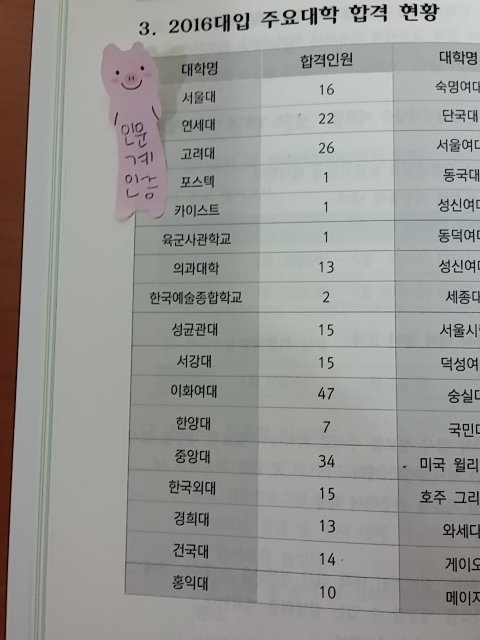 3. 2016대입 주요대학 합격 현황
대학명 합격인원 대학명
서울대 16 숙명여대
연세대 22 단국대
고려대 26 서울여대
포스텍 1 동국대
카이스트 1 성신여대
육군사관학교 1 동덕여대
의과대학 13 성신여대
한국예술종합학교 2 세종대
성균관대 15 서울시
서강대 15 덕성여
이화여대 47 숭실대
한양대 7 국민대
중앙대 34 미국 윌리
한국외대 15 호주 그리
경희대 13 와세다
건국대 14 게이오
홍익대 10 메이지
인문
계
인증